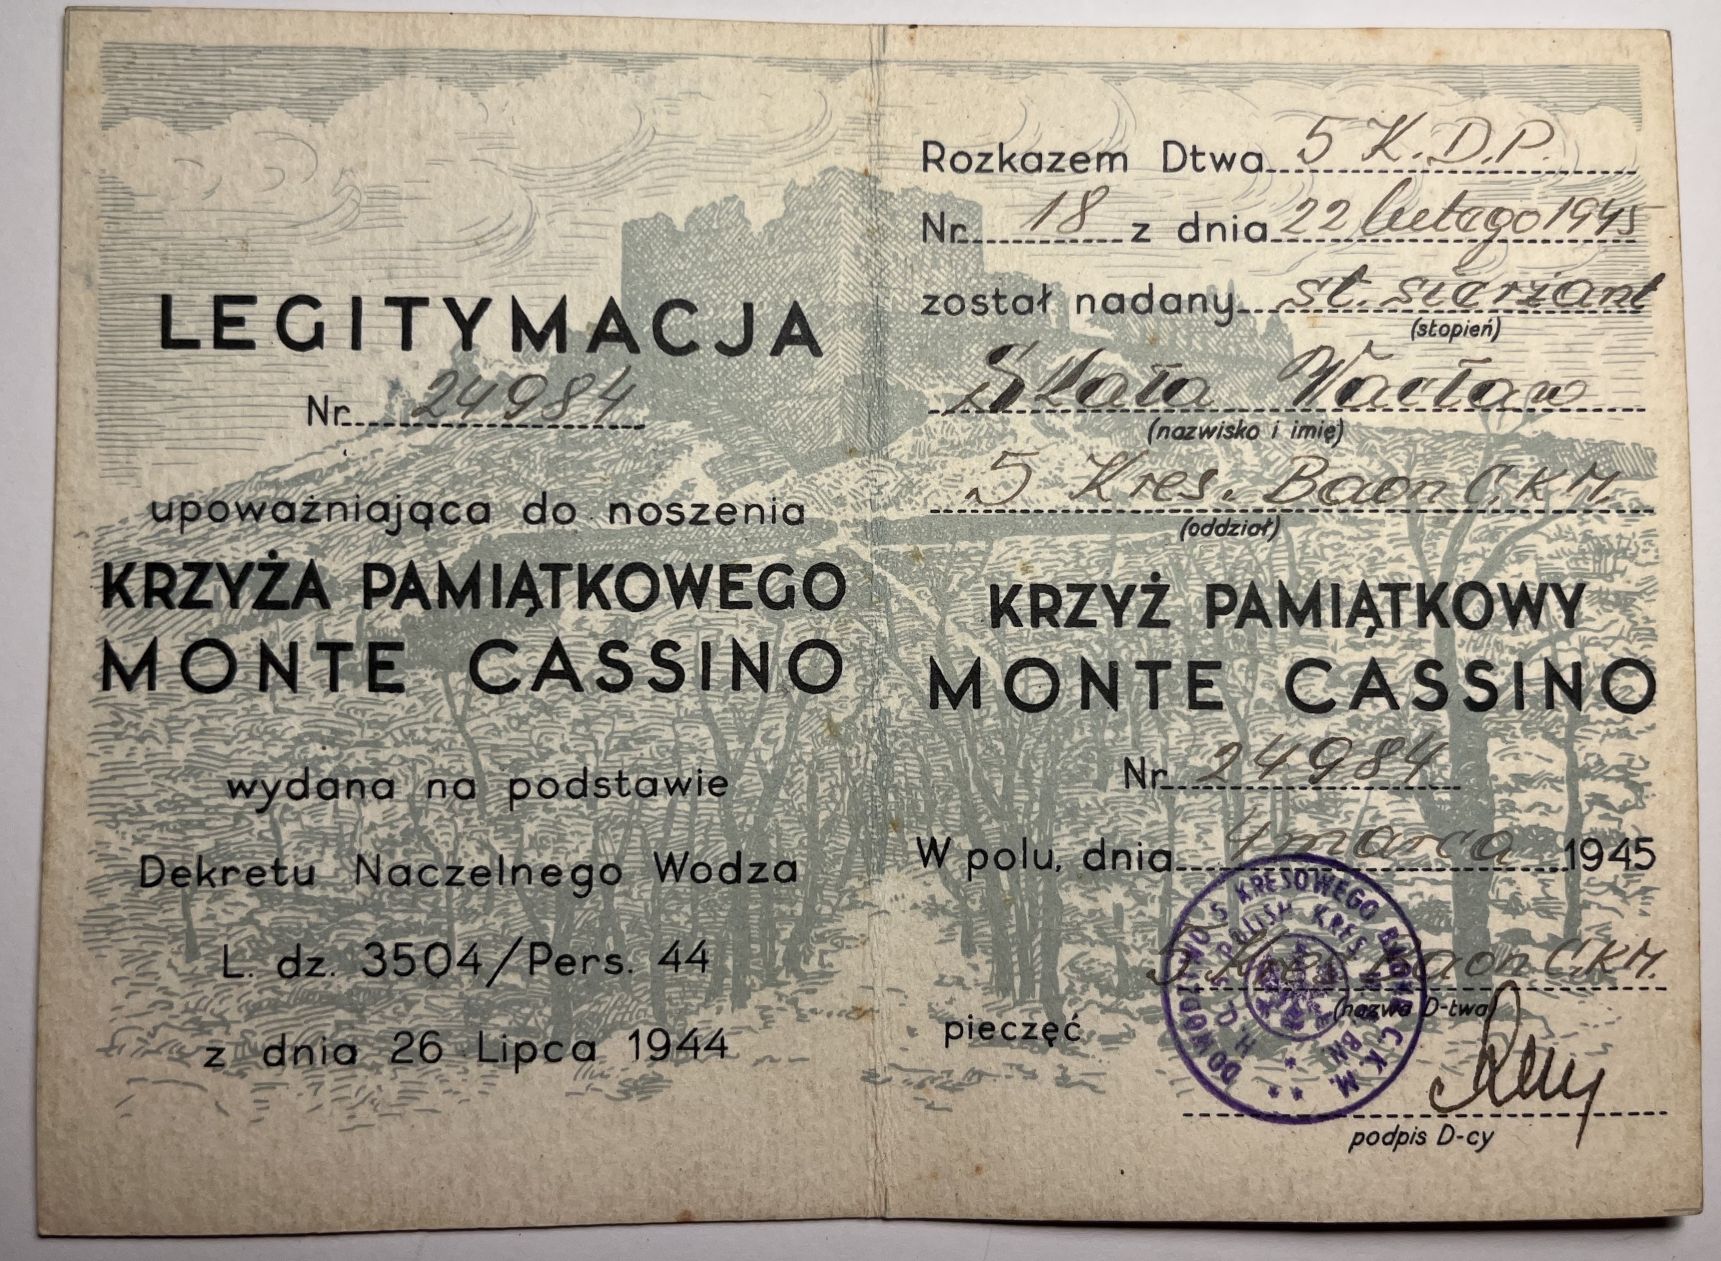 LEGITYMACJA
Nr. 24984
upoważniająca do noszenia
KRZYŻA PAMIĄTKOWEGO
MONTE CASSINO
wydana na podstawie
Dekretu Naczelnego Wodza
L. dz. 3504/Pers. 44
z dnia 26 Lipca 1944
Rozkazem Dtwa 5 K.D.P.
Nr. 18 z dnia 22 lutego 1945
został nadany st. sierżant
(stopień)
Skała Wacław
(nazwisko i imię)
5 Kres. Baon C.K.M.
(oddział)
KRZYŻ PAMIĄTKOWY
MONTE CASSINO
Nr. 24984
W polu, dnia 4 marca 1945
5 Kres. Baon C.K.M.
(nazwa D-twa)
pieczęć
DOWÓDZTWO 5 KRESOWEGO BAONU C.K.M.
H.Q. 5 POLISH KRES. BN.
podpis D-cy